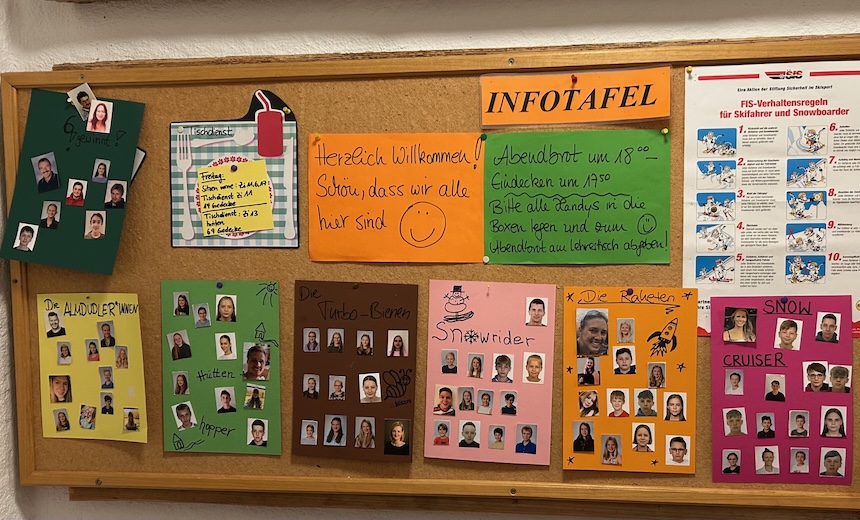 6
gewinnt!
Tischdienst
Freitag:
Tischdienst Zi 11
19 Gedecke
Tischdienst: Zi 13
hinten
69 Gedecke
Herzlich Willkommen!
Schön, dass wir alle
hier sind
INFOTAFEL
Abendbrot um 18⁰⁰
Eindecken um 17⁵⁰
Bitte alle Handys in die
Boxen legen und zum
Abendbrot am Lehrertisch abgeben!
Eine Aktion der Stiftung Sicherheit im Skisport
FIS-Verhaltensregeln
für Skifahrer und Snowboarder
1.
2.
3.
4.
5.
6.
7.
8.
9.
10.
Die ALMDUDLER*INNEN
Hütten
hopper
Die
Turbo-Bienen
Snowrider
Die Raketen
SNOW
CRUISER